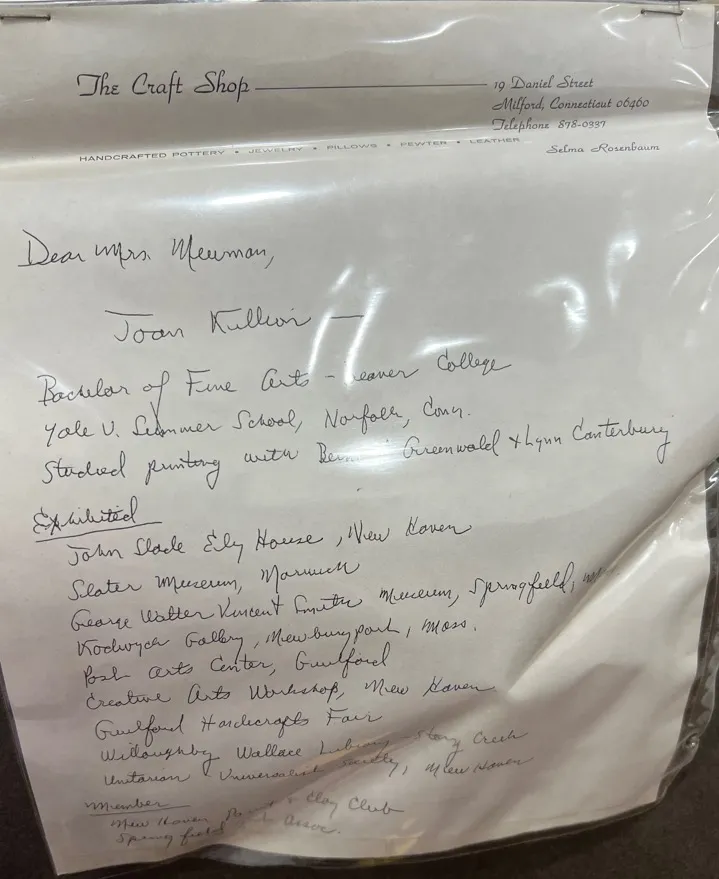 The Craft Shop
19 Daniel Street
Milford, Connecticut 06460
Telephone 878-0337
HANDCRAFTED POTTERY • JEWELRY • PILLOWS • PEWTER • LEATHER
Selma Rosenbaum
Dear Mrs. Newman,
Joan —
Bachelor of Fine Arts - College
Yale U. Summer School, Norfolk, Conn.
Studied printing with Greenwald & Lynn Canterbury
Exhibited
John Slade Ely House, New Haven
Slater Museum, Norwich
George Walter Vincent Smith Museum, Springfield,
Gallery, Newburyport, Mass.
Arts Center, Guilford
Creative Arts Workshop, New Haven
Guilford Handcrafts Fair
Willoughby Wallace Library - Stony Creek
Unitarian Universalist Society, New Haven
Member
New Haven Paint & Clay Club
Springfield Assoc.